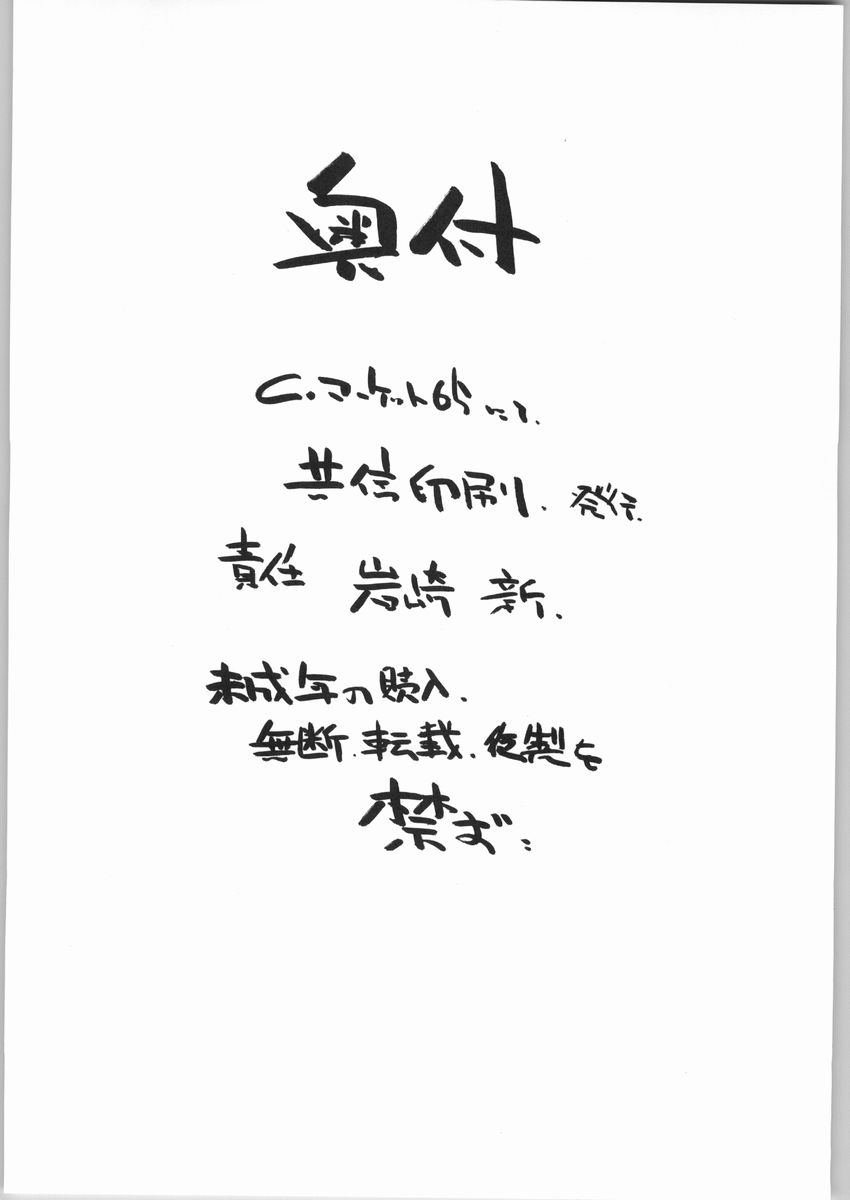 奥付
C.マーケット65にて.
共信印刷.発行.
責任 岩崎 新.
未成年の購入.
無断.転載.複製を
禁ず.